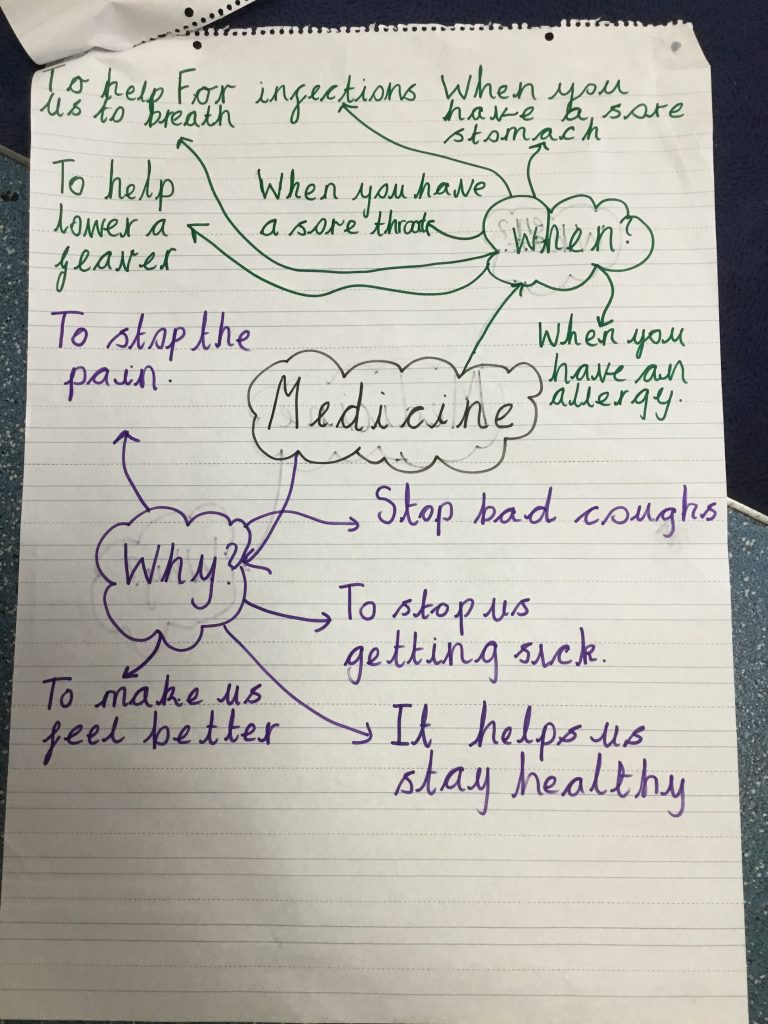 To help
us to breath
For infections
When you
have a sore
stomach
To help
lower a
feaver
When you have
a sore throat
When?
When you
have an
allergy.
Medicine
To stop the
pain.
Why?
Stop bad coughs
To stop us
getting sick.
To make us
feel better
It helps us
stay healthy